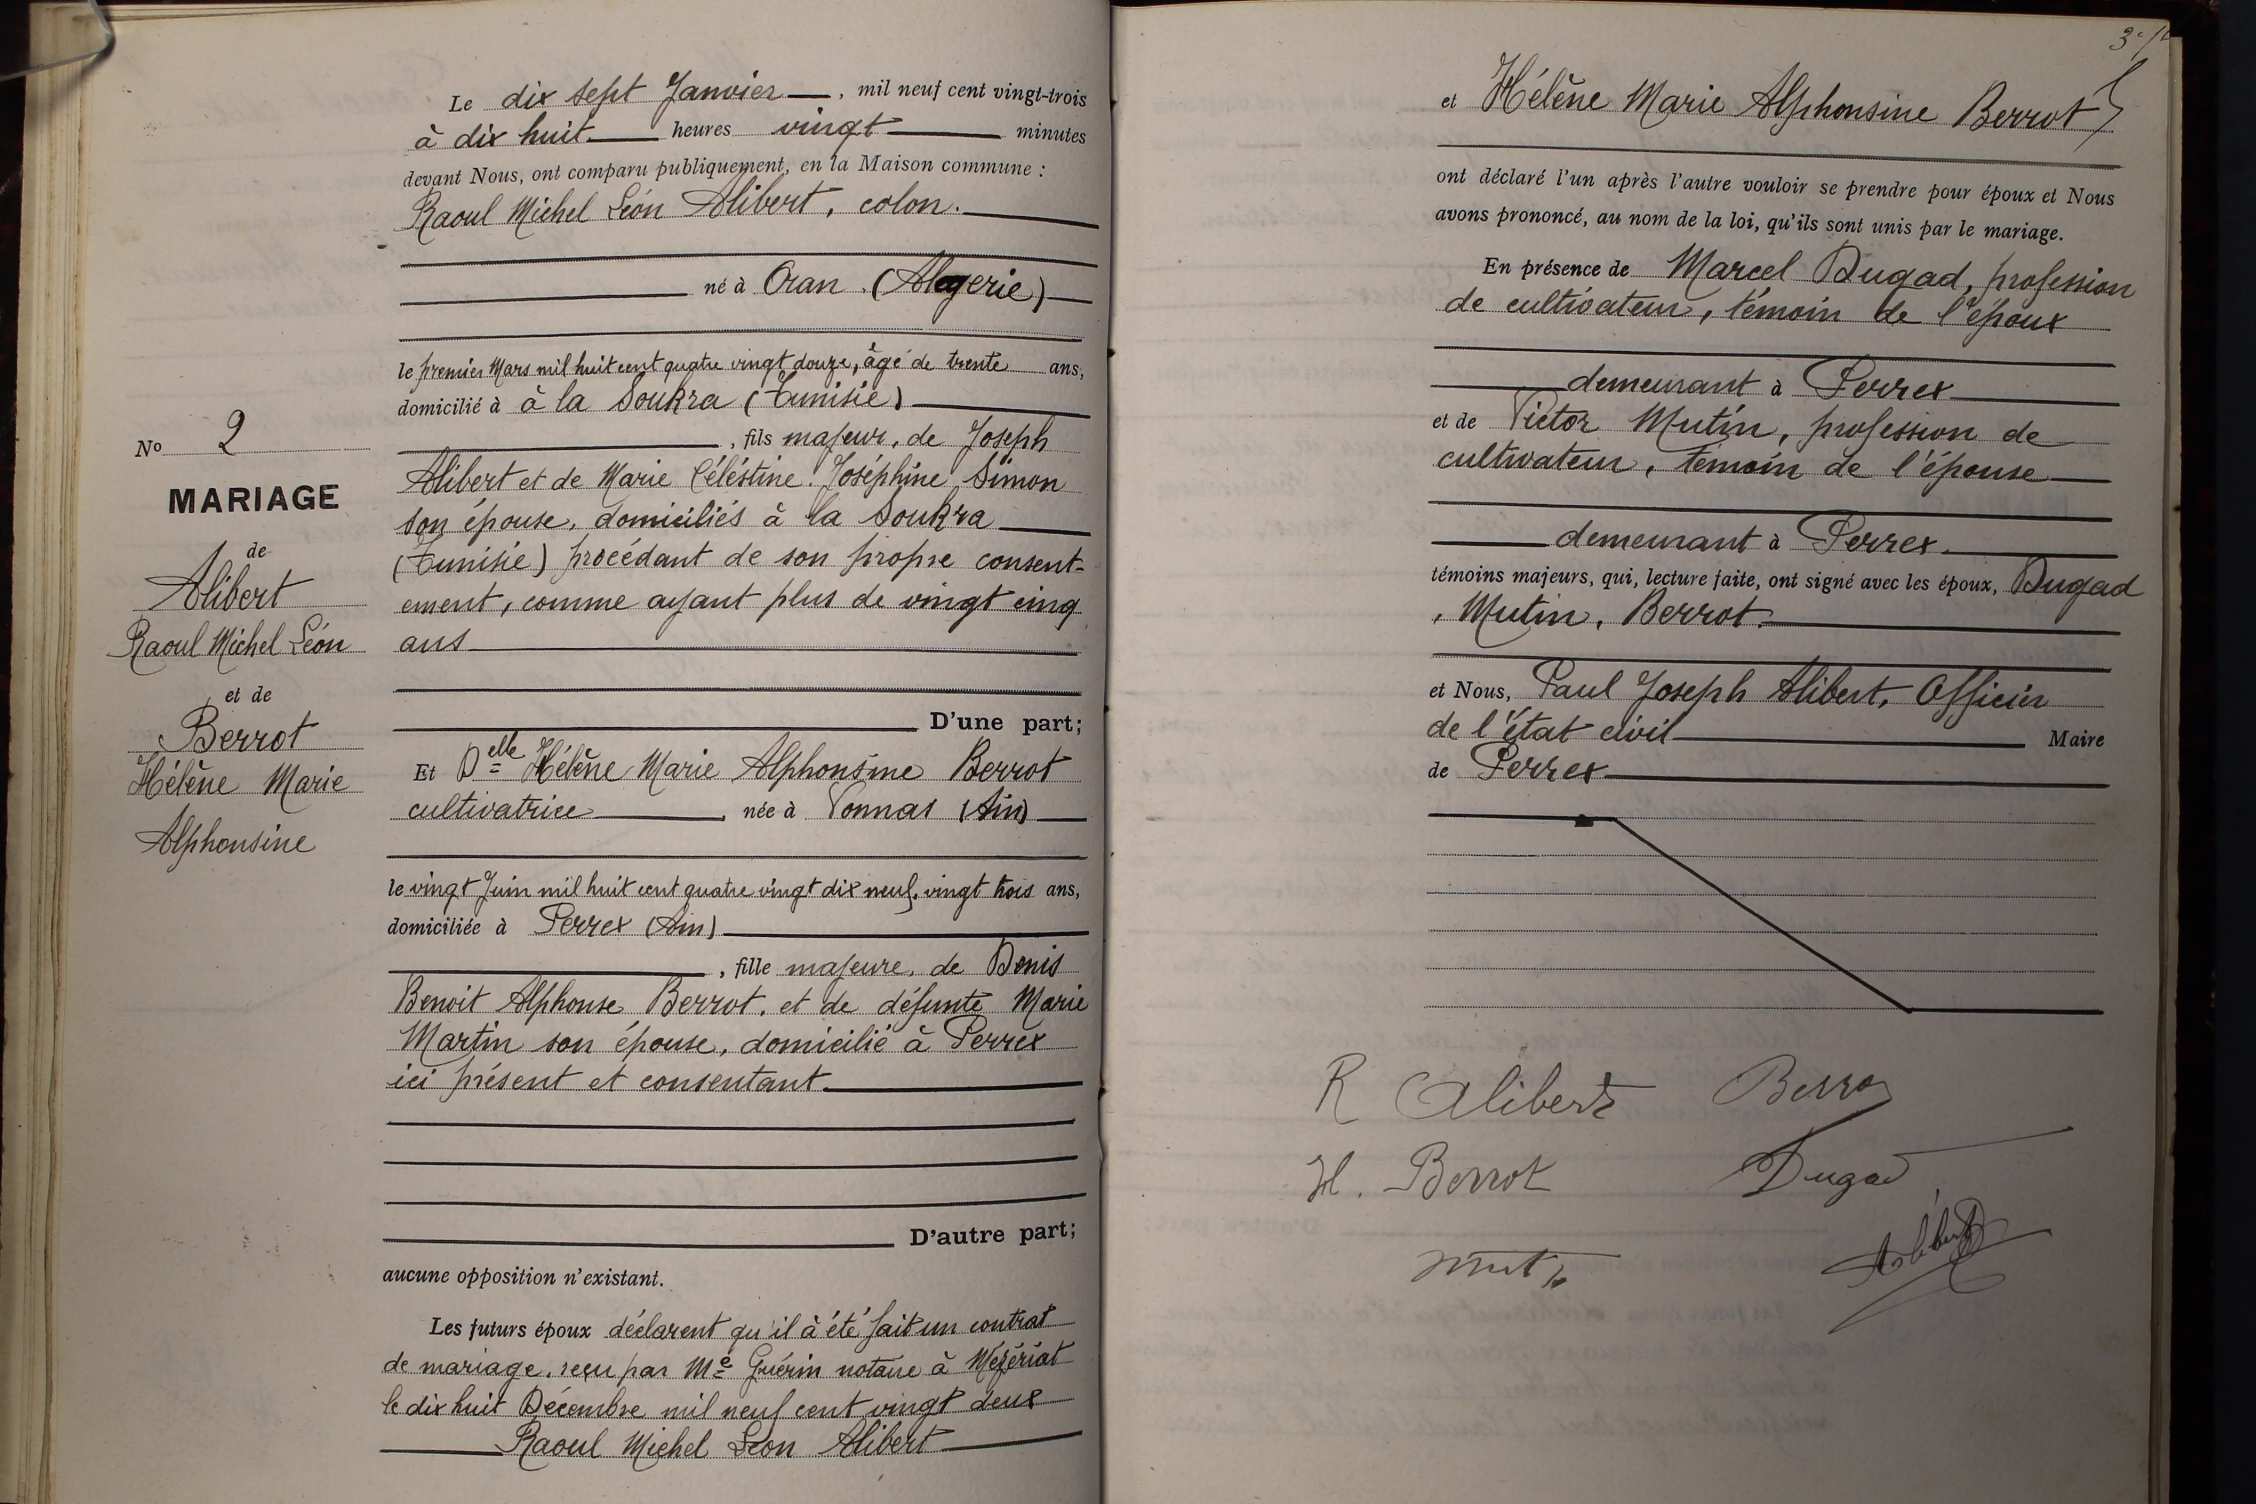 Le dix sept Janvier, mil neuf cent vingt-trois
à dix huit heures vingt minutes
devant Nous, ont comparu publiquement, en la Maison commune :
Raoul Michel Léon Alibert, colon.
né à Oran. (Algerie)
le premier Mars mil huit cent quatre vingt douze, âgé de trente ans,
domicilié à à la Soukra (Tunisie)
, fils majeur, de Joseph
Alibert et de Marie Céléstine Joséphine Simon
son épouse, domiciliés à la Soukra
(Tunisie) procédant de son propre consent-
ement, comme ayant plus de vingt cinq
ans
D'une part;
Et Delle Hélène Marie Alphonsine Berrot
cultivatrice, née à Vonnas (Ain)
le vingt Juin mil huit cent quatre vingt dix neuf, vingt trois ans,
domiciliée à Perrex (Ain)
, fille majeure, de Denis
Benoit Alphonse Berrot, et de défunte Marie
Martin son épouse, domicilié à Perrex
ici présent et consentant.
D'autre part;
aucune opposition n'existant.
Les futurs époux déclarent qu'il à été fait un contrat
de mariage, reçu par Me Guérin notaire à Mézériat
le dix huit Décembre mil neuf cent vingt deux
Raoul Michel Léon Alibert
No 2
MARIAGE
de
Alibert
Raoul Michel Léon
et de
Berrot
Hélène Marie
Alphonsine
et Hélène Marie Alphonsine Berrot
ont déclaré l'un après l'autre vouloir se prendre pour époux et Nous
avons prononcé, au nom de la loi, qu'ils sont unis par le mariage.
En présence de Marcel Dugad, profession
de cultivateur, témoin de l'époux
demeurant à Perrex
et de Victor Mutin, profession de
cultivateur, témoin de l'épouse
demeurant à Perrex.
témoins majeurs, qui, lecture faite, ont signé avec les époux, Dugad
, Mutin, Berrot.
et Nous, Paul Joseph Alibert, Officier
de l'état civil Maire
de Perrex
R Alibert Berrot
H. Berrot Dugad
Mutin Alibert